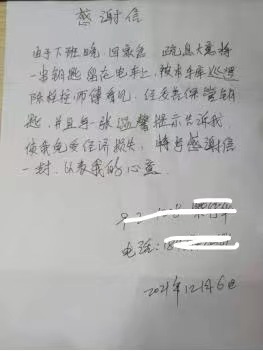 感谢信
由于下班晚,回家急 疏忽大意将
一串钥匙留在电车上,被市车库巡逻
陈拴拴师傅看见,经妥善保管钥
匙,并且写张温馨提示告诉我,
使我免受经济损失,特写感谢信
一封,以表我的心意
电话:18
2021年12月6日